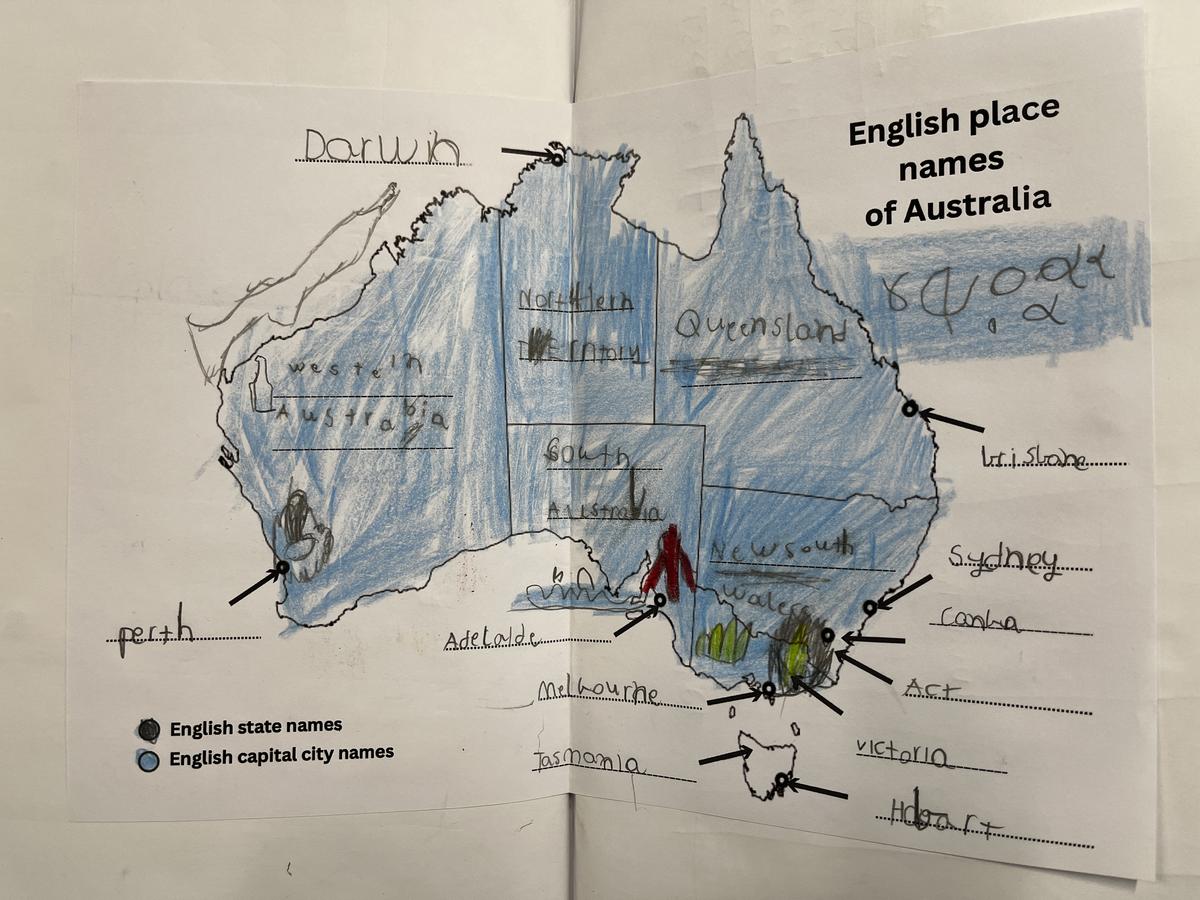 English place
names
of Australia
Darwin
Northern
Queensland
western
Australia
South
Australia
brisbane
Newsouth
wales
Sydney
perth
Adelaide
Canba
Act
Melbourne
victoria
Tasmania
Hobart
English state names
English capital city names